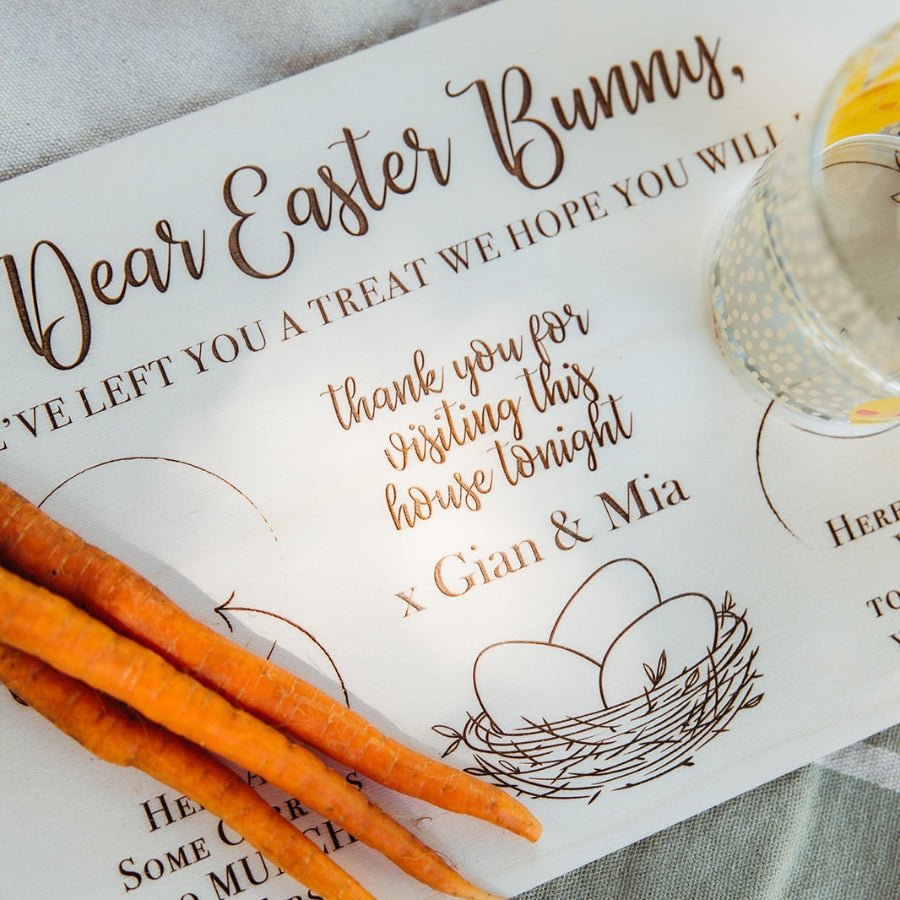 Dear Easter Bunny,
'VE LEFT YOU A TREAT WE HOPE YOU WILL
thank you for
visiting this
house tonight
x Gian & Mia
HERE
TO
SOME
MUNCH